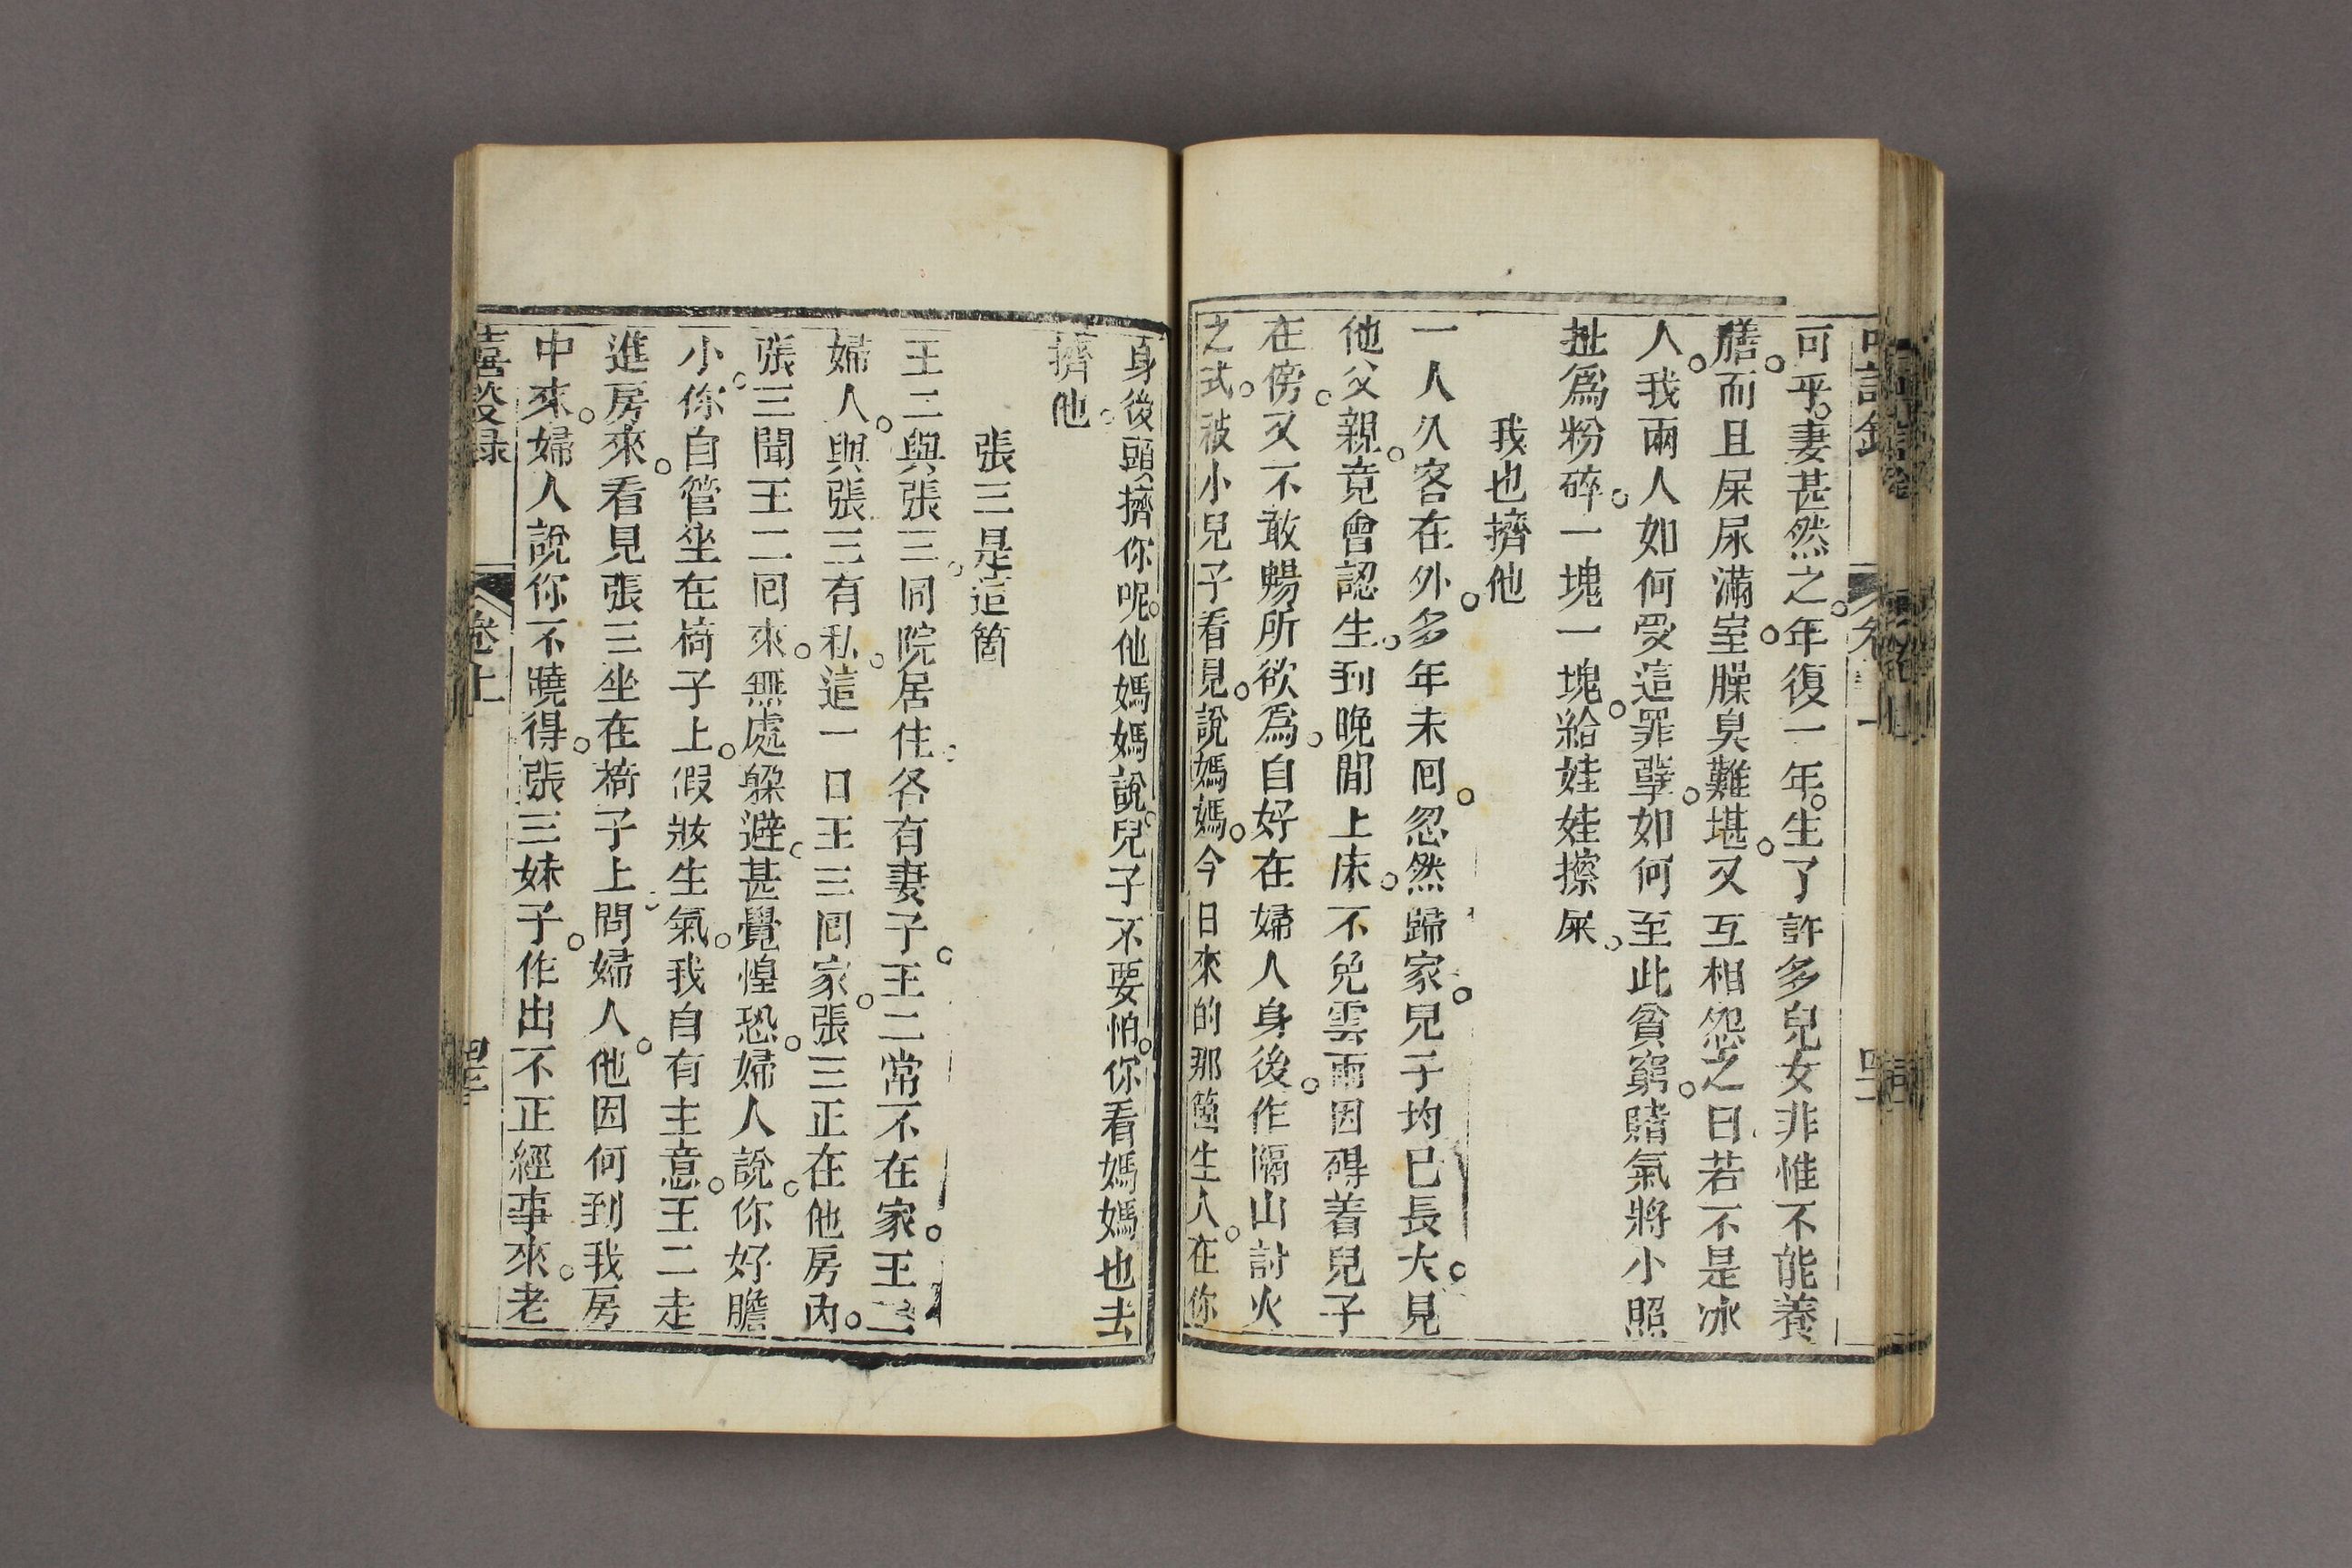 可乎。妻甚然之。年復一年。生了許多兒女非惟不能養
膳。而且屎尿滿室。臊臭難堪。又互相怨之曰若不是冰
人。我兩人如何受這罪孽。如何至此貧窮。賭氣將小照
扯爲粉碎。一塊一塊。給娃娃擦屎。
我也擠他
一人久客在外。多年未囘。忽然歸家。兒子均已長大。見
他父親。竟會認生。到晚間上床。不免雲雨因碍着兒子
在傍。又不敢暢所欲爲。自好在婦人身後。作隔山討火
之式。被小兒子看見。說媽媽。今日來的那箇生人。在你
身後頭擠你呢。他媽媽說。兒子不要怕。你看媽媽也去
擠他。
張三是這箇
王二與張三。同院居住。各有妻子。王二常不在家。王二
婦人。與張三有私。這一日王三囘家。張三正在他房內。
張三聞王二囘來。無處躱避。甚覺惶恐。婦人說。你好膽
小。你自管坐在椅子上。假妝生氣。我自有主意。王二走
進房來。看見張三坐在椅子上。問婦人。他因何到我房
中來。婦人說你不曉得。張三妹子。作出不正經事來。老
嘻談录
卷上